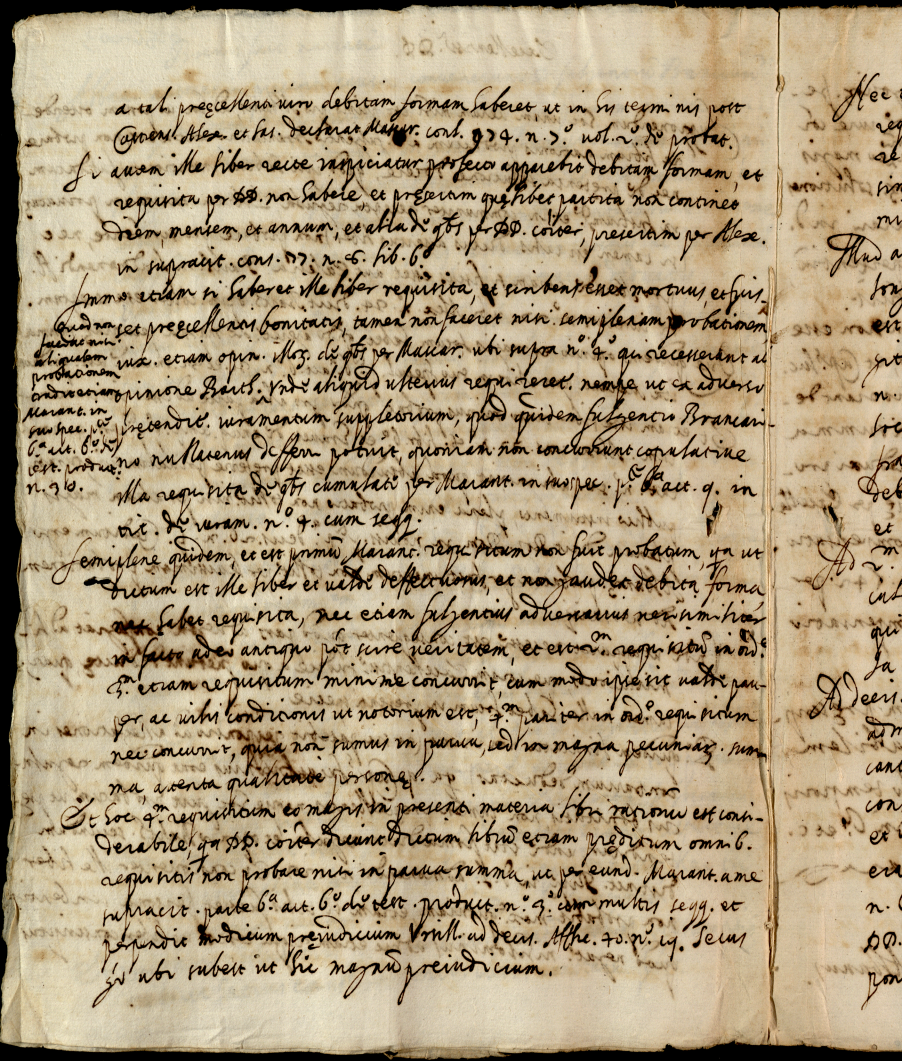 a tali pręcellenti viro debitam formam haberet, ut in his terminis post
Castrens. Alex. et Ias. declarat Mascar. concl. 974. n. 7.º vol. 2.º de probat.
Si autem ille liber recte inspiciatur, profecto apparebit debitam formam, et
requisita per DD. non habere, et pręsertim quęlibet partita non continet
diem, mensem, et annum, et alia de qbs per DD. coiter, presertim per Alex.
in supracit. cons. 77. n. 8. lib. 6º
Immo etiam si haberet ille liber requisita, et scribens esset mortuus et fuis-
set pręcellentis bonitatis, tamen non faceret nisi semiplenam probationem
iux. etiam opin. Moz. de qbs per Mascar. ubi supra nº. 4.º qui recesserunt ab
opinione Barth. Unde aliquid ulterius requireret. nempe ut ex adverso
prętendit. iuramentum suppletorium, quod quidem fulgentio Brancari-
no nullatenus defferri potuit, quoniam non concurrunt copulative
illa requisita de qbs cumulate per Marant. in suo spec. pe 6ª act. 9. in
tit. de iuram. n.º 4. cum seqq.
quod non
faceret nisi
aliqualem
probationem
tradit etiam
Marant. in
suo spec. pte
6ª act. 6.º de
test. product.
n. 30.
Semiplene quidem, et est primū Marant. requisitum non fuit probatum, qa ut
dictum est ille liber et valde deffectuosus, et non gaudet debitą forma
nec habet requisita, nec etiam fulgentius adversarius verisimiliter
in facto adeo antiquo pōt scire veritatem, et est 2.m requisitū in ord.e
3.m etiam requisitum minime concurrit, cum modo ipse sit valde pau-
per, ac vilis conditionis ut notorium est, 4.m pariter in ord.e requisitum
nec concurrit, quia non sumus in parva, sed in magna pecuniar. sum-
ma, attenta qualitate personę.
Et hoc 4.m requisitum eo magis in presenti materia libri rationū est consi-
derabile, qa DD. coiter dicunt dictum librū etiam pręditum omnib.
requisitis non probare nisi in parva summa, ut per eund. Marant. a me
supracit. parte 6ª act. 6.º de test. product. n.º 3. cum multis seqq. et
perpendit modicum pręiudicium Ursill. ad decis. Afflic. 40. n.º 19. Secus
gr ubi subest ut hic magnū preiudicium.